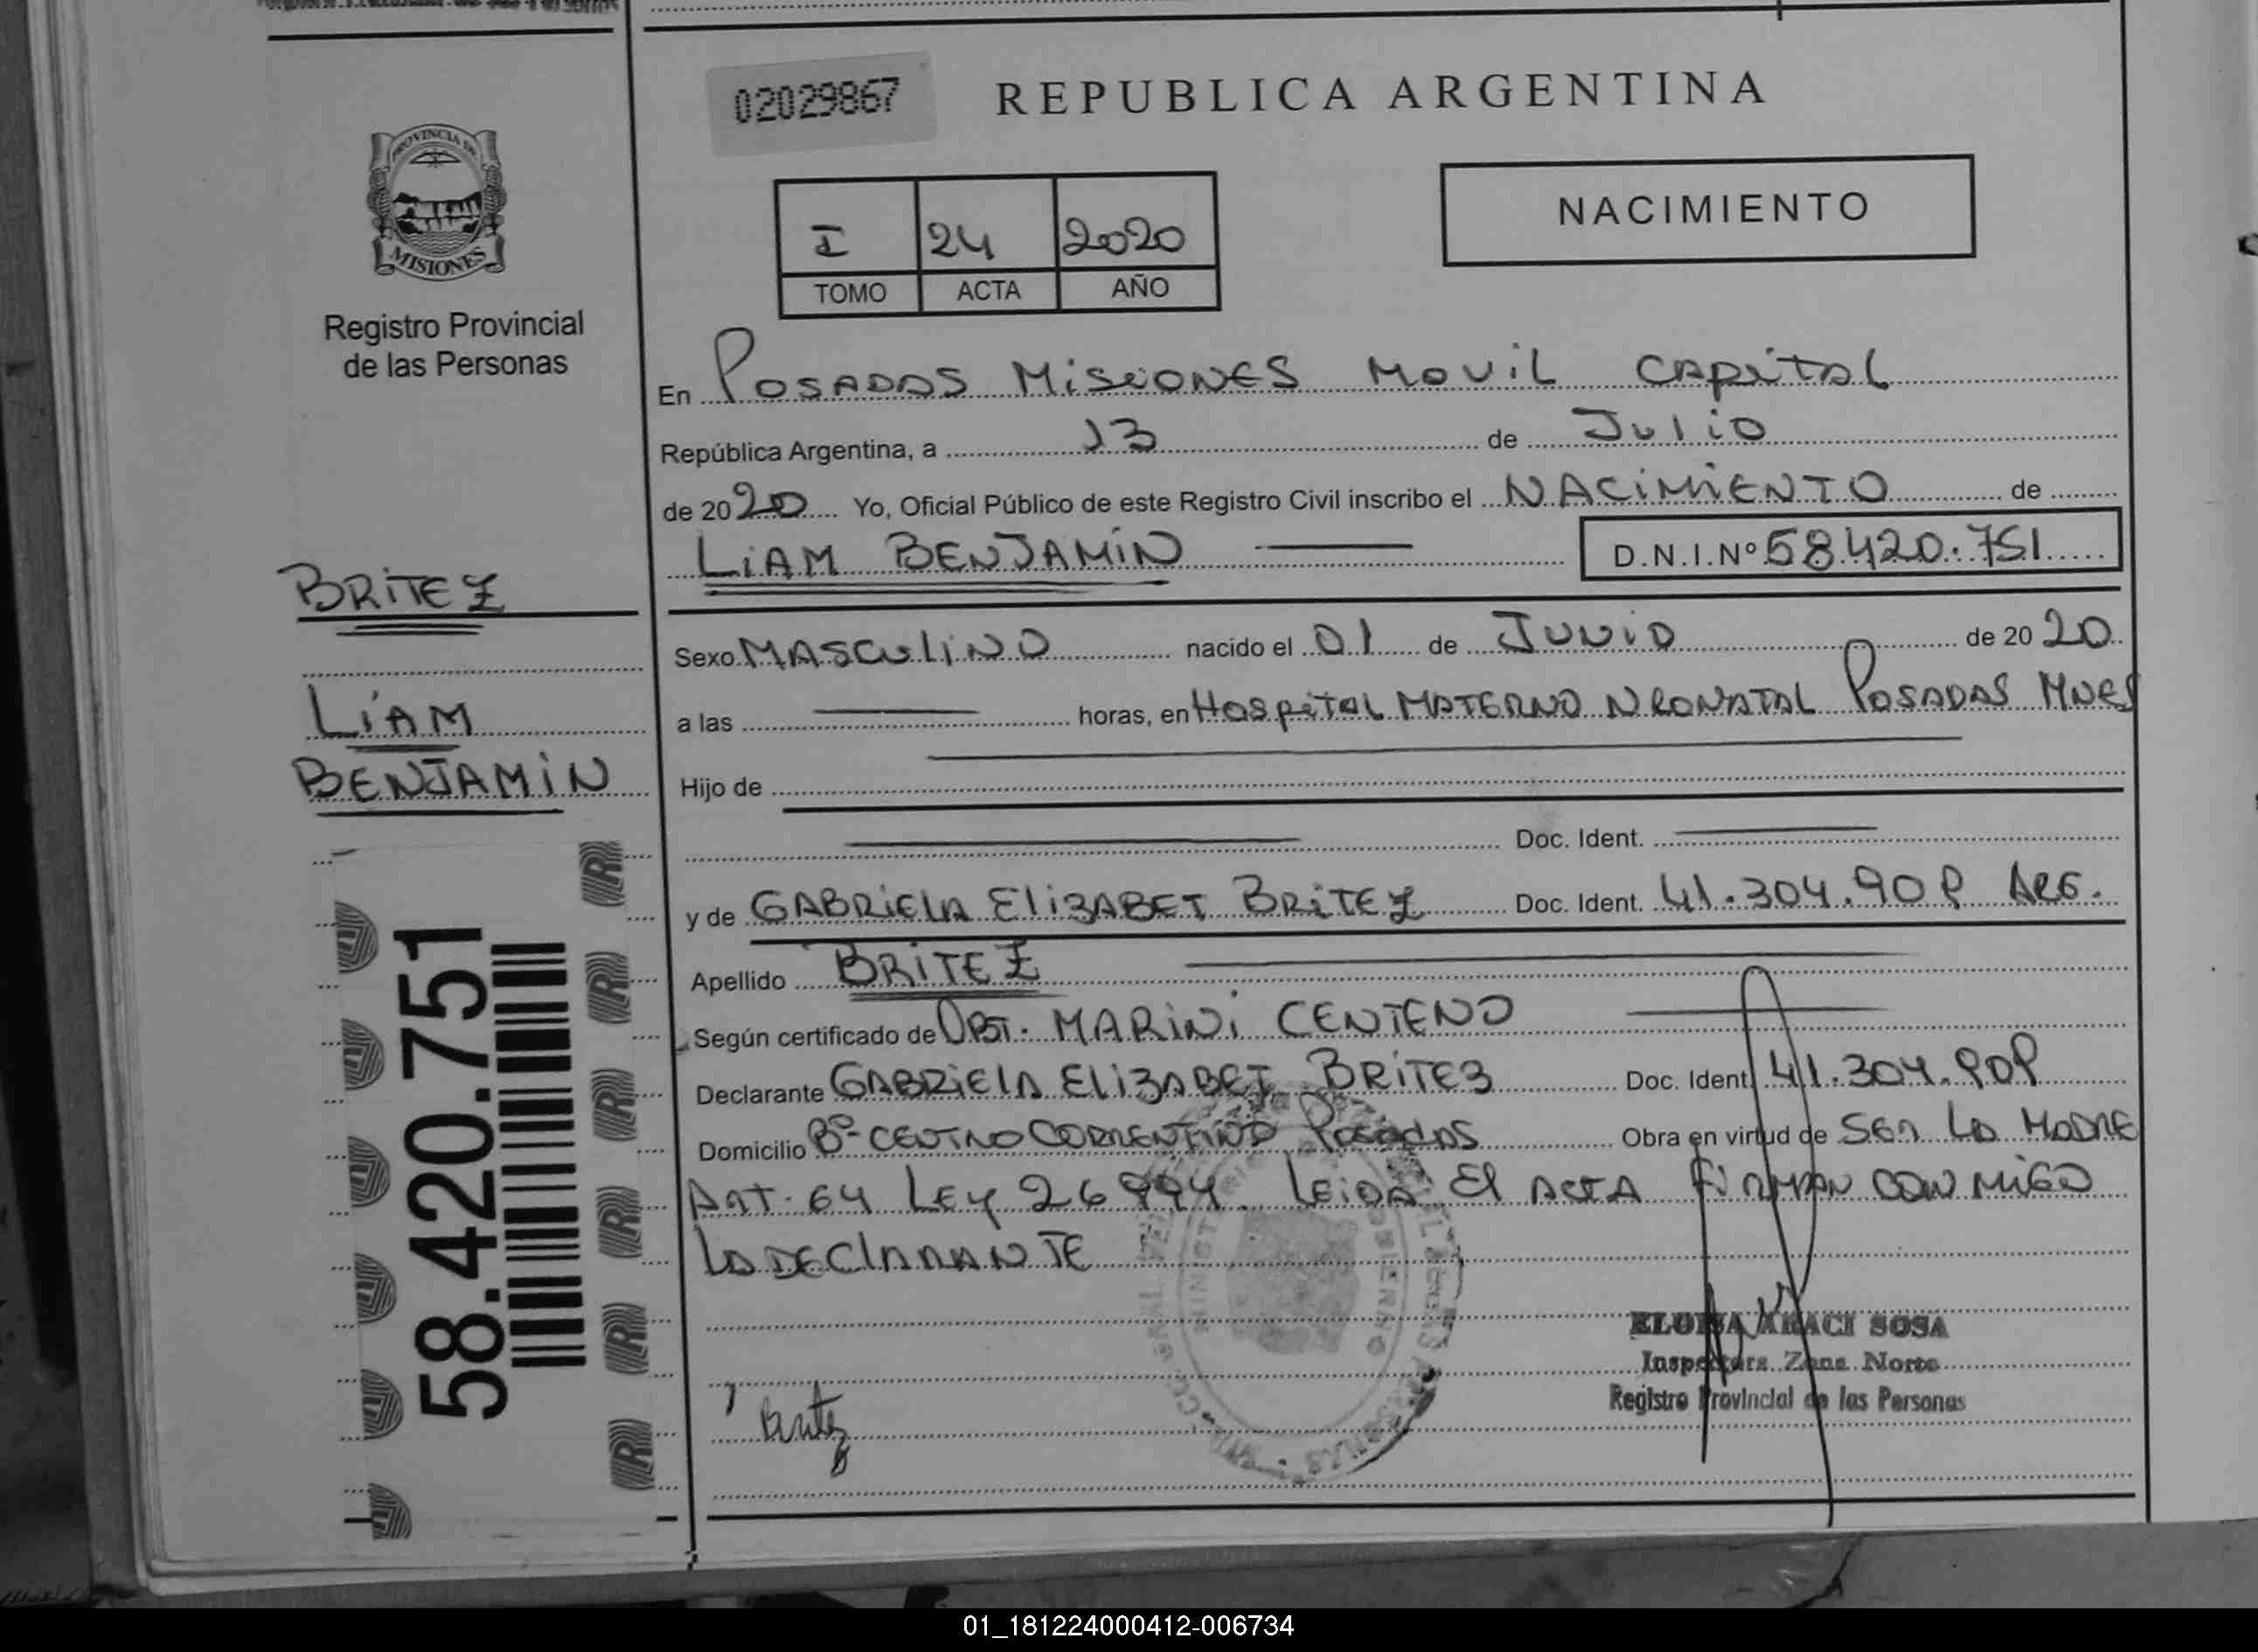 02029867
REPUBLICA ARGENTINA
PROVINCIA DE
MISIONES
Registro Provincial
de las Personas
I 24 2020
TOMO ACTA AÑO
NACIMIENTO
En POSADAS MISIONES MOVIL CAPITAL
República Argentina, a 13 de JULIO
de 2020 Yo, Oficial Público de este Registro Civil inscribo el NACIMIENTO de
LIAM BENJAMIN D.N.I.Nº 58.420.751
BRITEZ
LIAM
BENJAMIN
58.420.751
Sexo MASCULINO nacido el 01 de JUNIO de 2020
a las horas, en HOSPITAL MATERNO NEONATAL POSADAS MNES
Hijo de
Doc. Ident.
y de GABRIELA ELIZABET BRITEZ Doc. Ident. 41.304.909 ARG.
Apellido BRITEZ
Según certificado de OBST. MARINI CENTENO
Declarante GABRIELA ELIZABET BRITEZ Doc. Ident. 41.304.909
Domicilio Bº CENTRO CORRENTINO POSADAS Obra en virtud de SER LA MADRE
ART. 64 LEY 26994. LEIDA El ACTA FIRMAN CON MIGO
LA DECLARANTE
ELOISA ARACI SOSA
Inspectora Zona Norte
Registro Provincial de las Personas
Britez
01_181224000412-006734